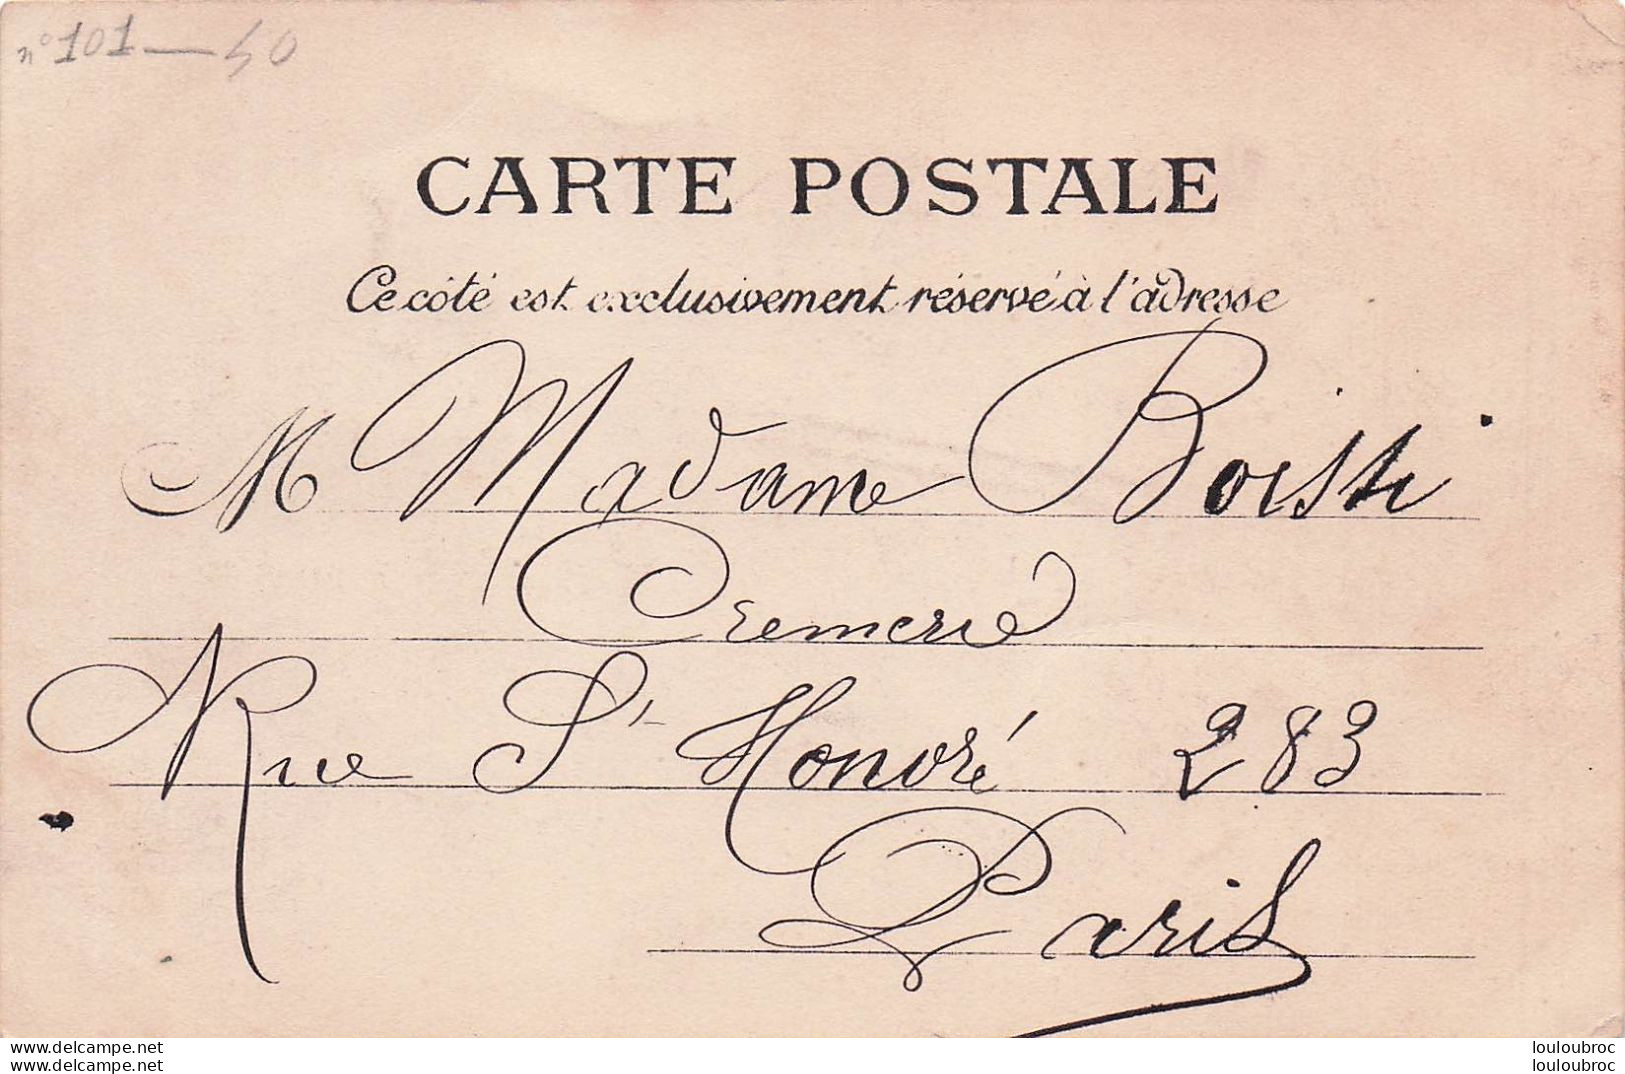 n° 101 — 40
CARTE POSTALE
Ce côté est exclusivement réservé à l'adresse
M Madame
Cremerie
Rue St Honoré 283
Paris
www.delcampe.net louloubroc
www.delcampe.net louloubroc